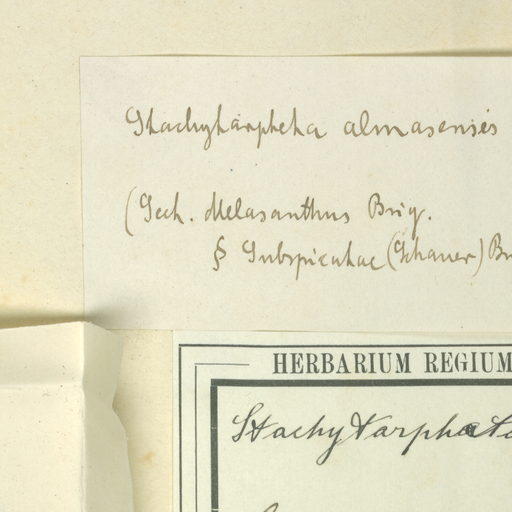 Stachytarpheta almasensis
(Sect. Melasanthus Briq.
§ Subspicatae (Schauer) Br
HERBARIUM REGIUM
Stachytarpheta